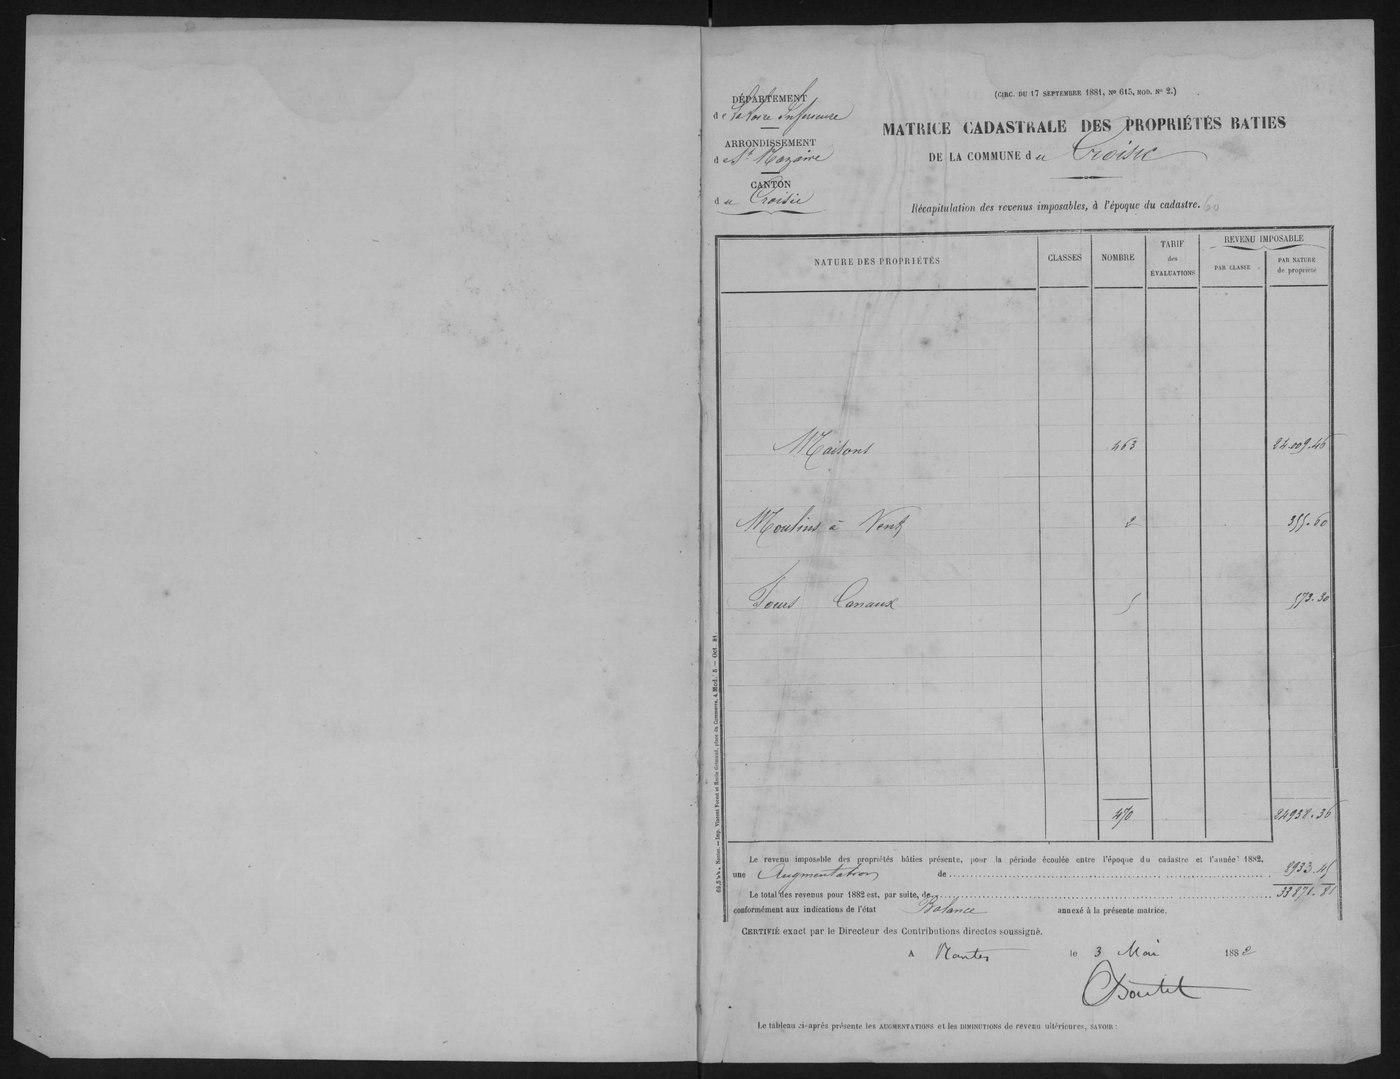 DÉPARTEMENT
de la Loire Inférieure
ARRONDISSEMENT
de St Nazaire
CANTON
du Croisic
(CIRC. DU 17 SEPTEMBRE 1881, No 615, MOD. No 2.)
MATRICE CADASTRALE DES PROPRIÉTÉS BATIES
DE LA COMMUNE du Croisic
Récapitulation des revenus imposables, à l'époque du cadastre. 60
NATURE DES PROPRIÉTÉS
CLASSES
NOMBRE
TARIF
des
ÉVALUATIONS
REVENU IMPOSABLE
PAR CLASSE
PAR NATURE
de propriété
Maisons 463 24.009.46
Moulins à Vent 2 355.60
Fours Canaux 5 573.30
470 24938.36
Le revenu imposable des propriétés bâties présente, pour la période écoulée entre l'époque du cadastre et l'année 1882,
une Augmentation de 8933.45
Le total des revenus pour 1882 est, par suite, de 33871.81
conformément aux indications de l'état Balance annexé à la présente matrice.
CERTIFIÉ exact par le Directeur des Contributions directes soussigné.
A Nantes le 3 Mai 1882
Le tableau ci-après présente les AUGMENTATIONS et les DIMINUTIONS de revenu ultérieures, SAVOIR :